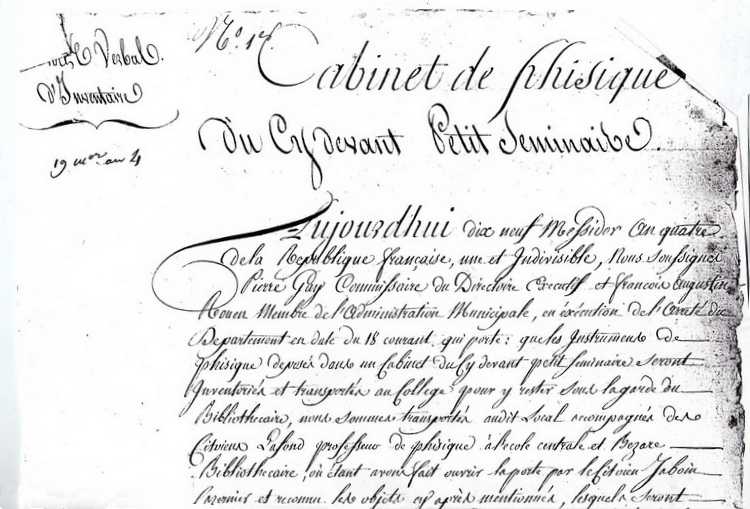 Procès Verbal
d'Inventaire
19 mor an 4
Cabinet de phisique
Du Cy devant Petit Seminaire
Aujourdhui dix neuf Messidor an quatre
de la Republique française, une et Indivisible, Nous Soussignés
Pierre Guy Commissaire du Directoire Executif et francois Augustin
Rouen Membre de l'Administration Municipale, en exécution de l'Arreté du
Departement en date du 18 courant, qui porte: que les Instrumens de
phisique deposés dans un Cabinet du Cy devant petit Seminaire Seront
Inventoriés et transportés au College pour y rester sous la garde du
Bibliothecaire, nous sommes transportés audit Local accompagnés des
Citoyens Lafond professeur de phisique à l'ecole centrale et Bezare
Bibliothecaire, où étant avons fait ouvrir la porte par le Citoyen Jaboin
et reconnu les objets cy après mentionnés, lesquels Seront